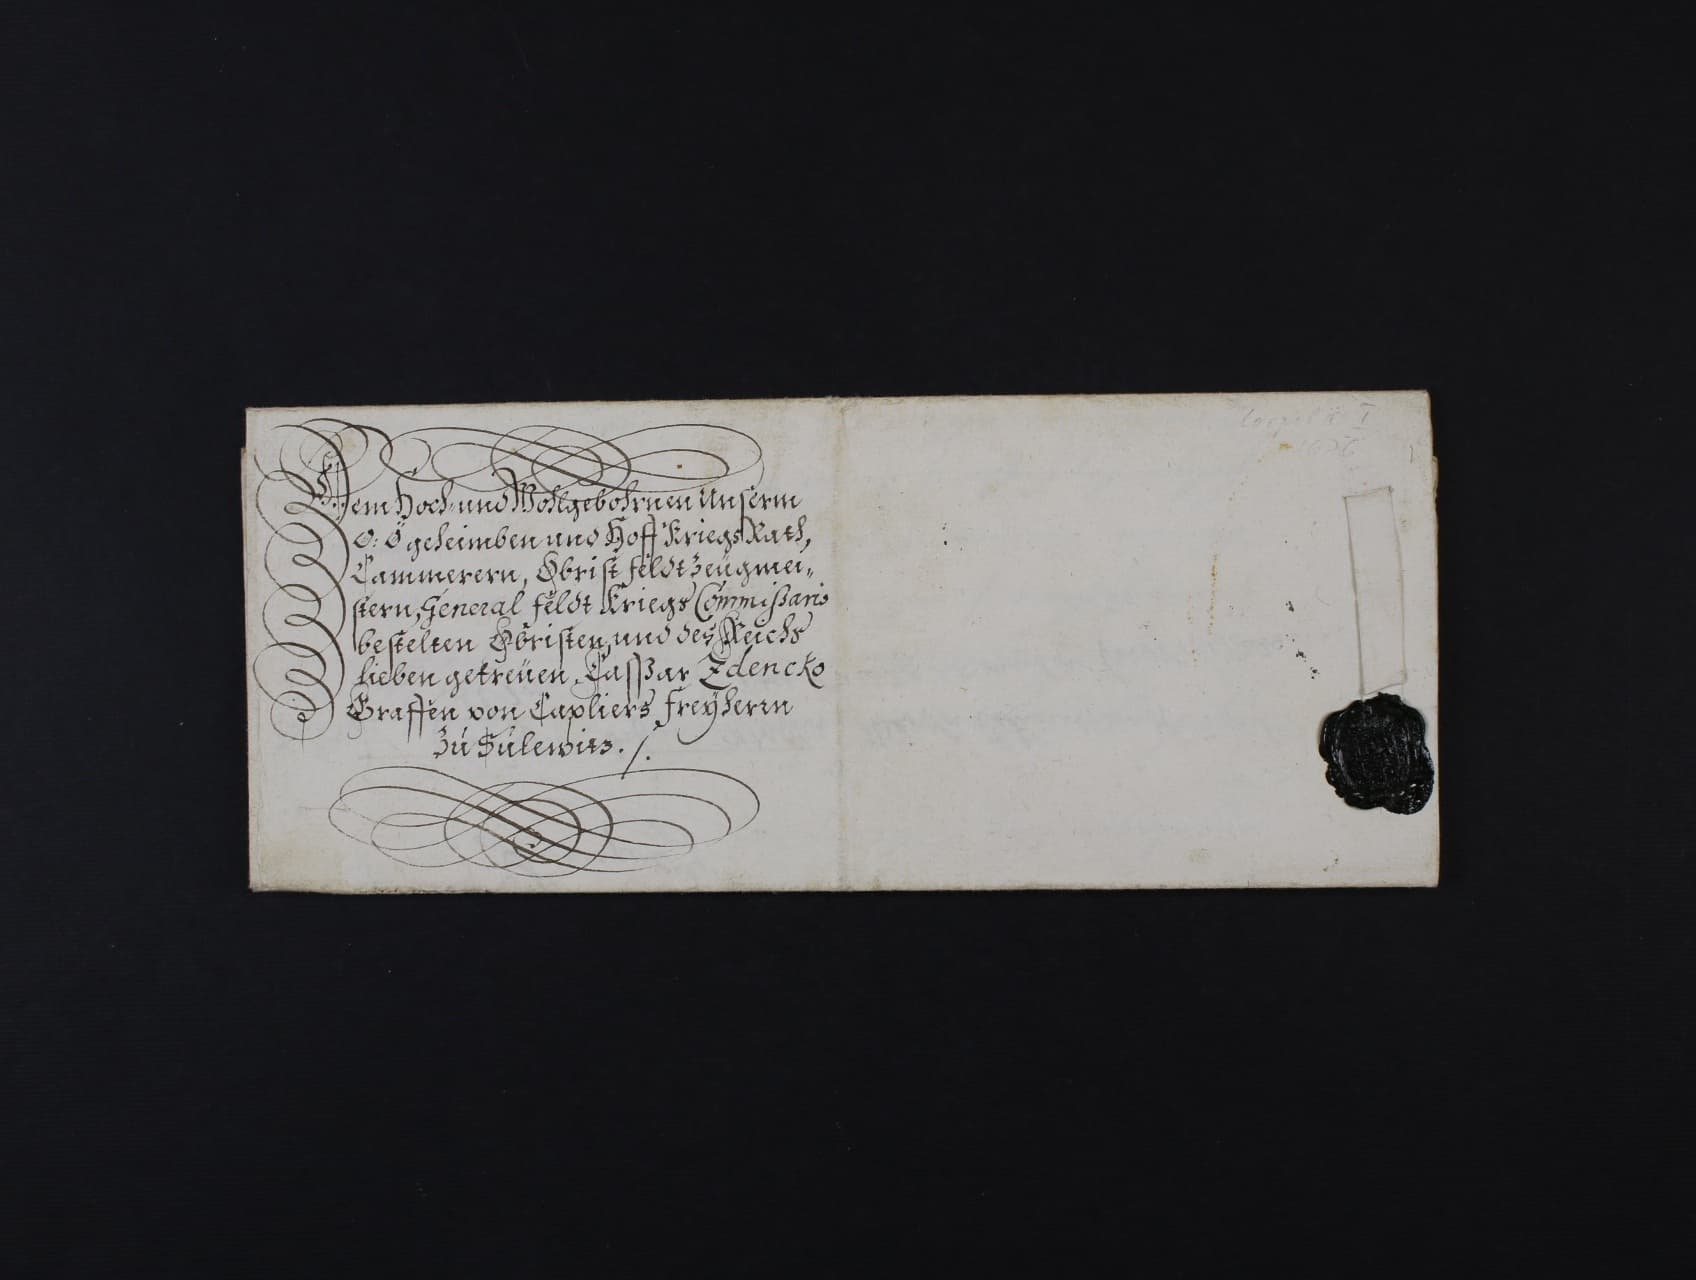 Dem Hoch- und Wohlgebohrnen Unserm
O: Ö geheimben und Hoff KriegsRath,
Cammerern, Obrist feldtZeügmei„
stern, General feldt Kriegs Commißario
bestelten Obristen, und des Reichs
lieben getreüen, Caſßar Zdencko
Graffen von Capliers freÿherrn
Zú Súlewitz. ./.
I